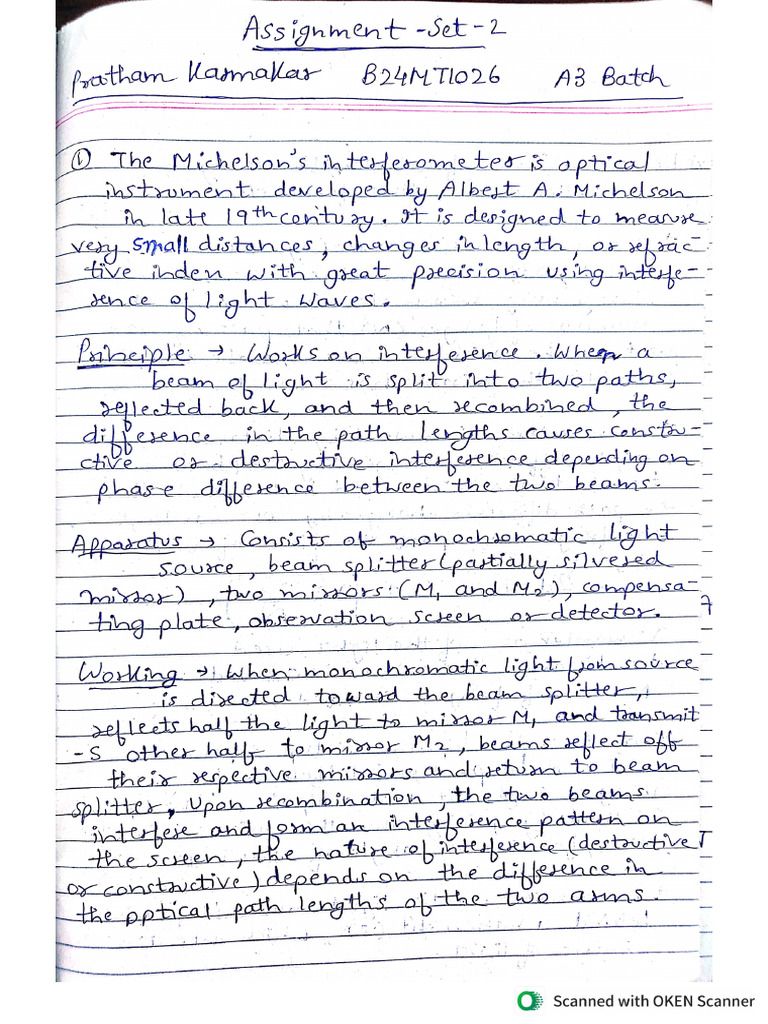 Assignment - Set - 2
Pratham Karmakar B24MT1026 A3 Batch
① The Michelson's interferometer is optical
instrument developed by Albert A. Michelson
in late 19th century. It is designed to measure
very small distances, changes in length, or refrac-
tive inden with great precision using interfe-
rence of light waves.
Principle → Works on interference. When a
beam of light is split into two paths,
reflected back, and then recombined, the
difference in the path lengths causes constru-
ctive or destructive interference depending on
phase difference between the two beams.
Apparatus → Consists of monochromatic light
source, beam splitter (partially silvered
mirror), two mirrors (M1 and M2), compensa-
ting plate, observation screen or detector.
Working → When monochromatic light from source
is directed toward the beam splitter,
reflects half the light to mirror M1 and transmit
-s other half to mirror M2, beams reflect off
their respective mirrors and return to beam
splitter, Upon recombination, the two beams
interfere and form an interference pattern on
the screen, the nature of interference (destructive
or constructive) depends on the difference in
the optical path lengths of the two arms.
Scanned with OKEN Scanner